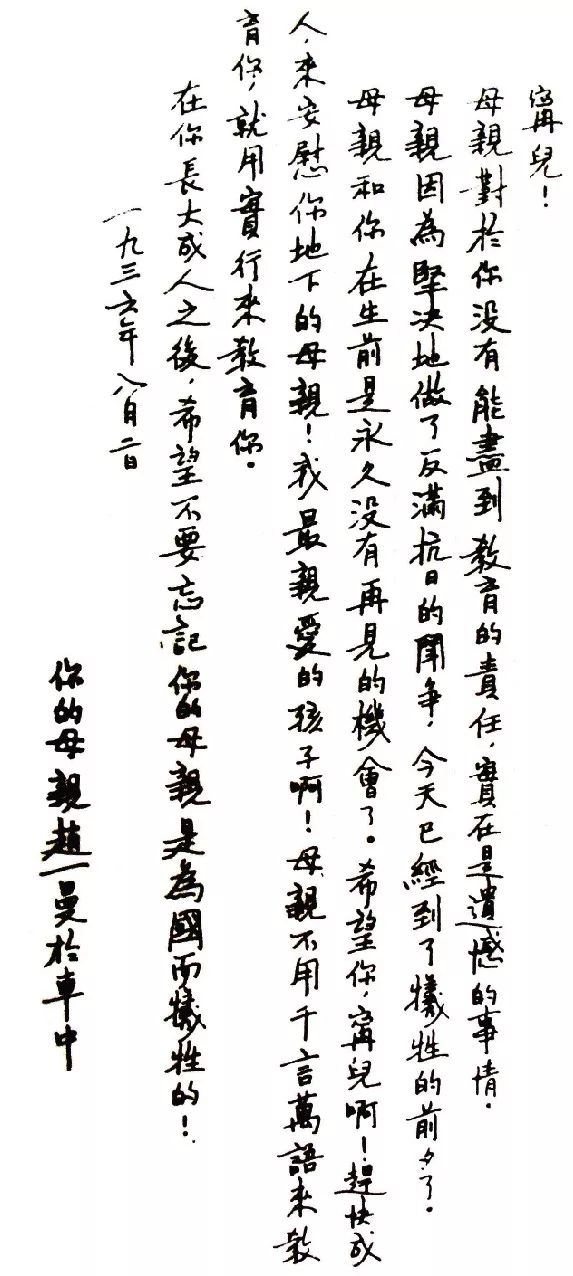 甯兒！
母親對於你沒有能盡到教育的責任，實在是遺憾的事情。
母親因為堅決地做了反滿抗日的鬪爭，今天已經到了犧牲的前夕了。
母親和你在生前是永久沒有再見的機會了。希望你，甯兒啊！趕快成
人，來安慰你地下的母親！我最親愛的孩子啊！母親不用千言萬語來教
育你，就用實行來教育你。
在你長大成人之後，希望不要忘記你的母親是為國而犧牲的！
一九三六年八月二日
你的母親趙一曼於車中